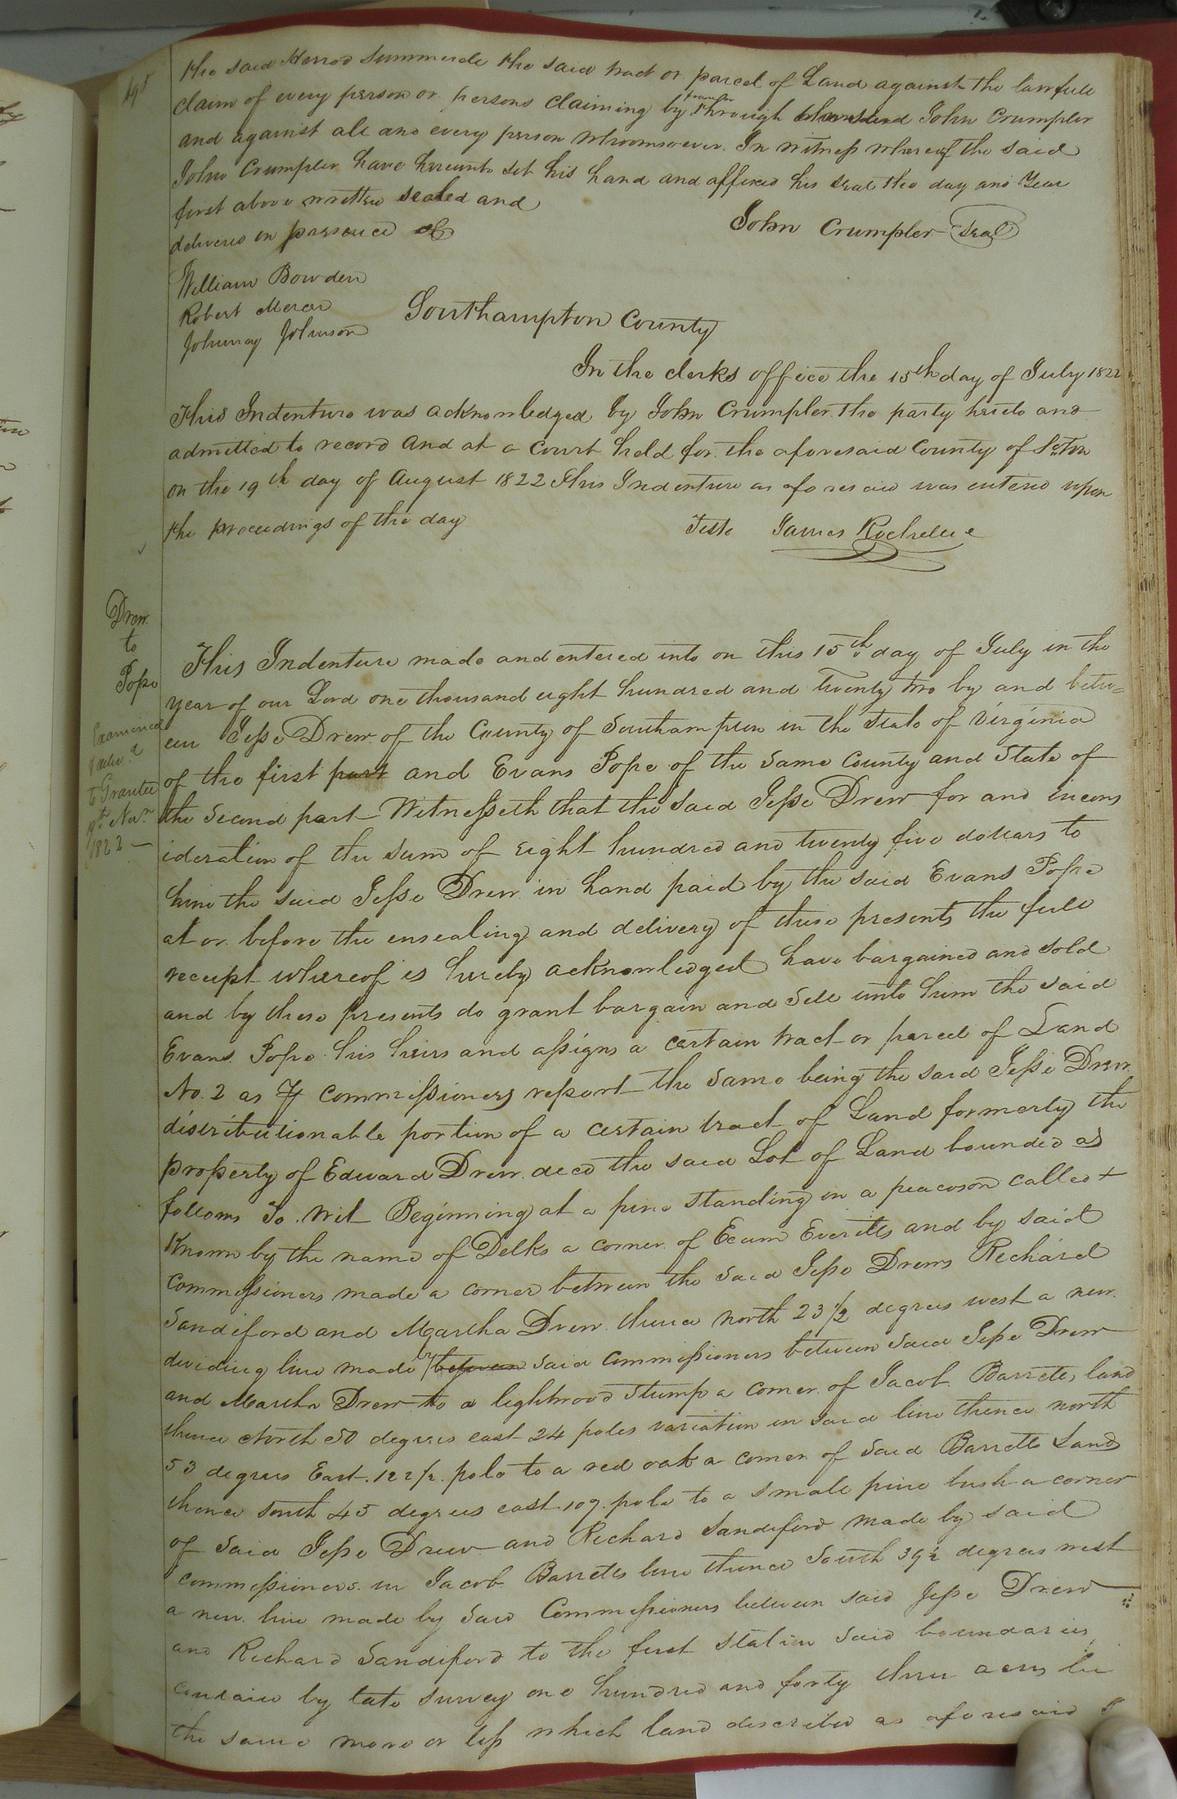 the said Herrod Summerele the said tract or parcel of Land against the lawfull
claim of every person or persons claiming by through John Crumpler
and against all and every person whomsoever. In witness whereof the said
John Crumpler have hereunto set his hand and affixed his seal the day and Year
first above written sealed and
delivered in pressence of
John Crumpler Seal
William Bowden
Robert Mercer
Johnson
Southampton County
In the clerks office the 15th day of July 1822
This Indenture was acknowledged by John Crumpler the party hereto and
admitted to record And at a Court held for the aforesaid County of Soton
on the 19th day of August 1822 This Indenture as aforesaid was entered upon
the proceedings of the day
Teste James Rochelle
Drew
to
Pope
Examined
& delivd
to Grantee
Novr
1822
This Indenture made and entered into on this 15th day of July in the
year of our Lord one thousand eight hundred and twenty two by and betw=
een Jesse Drew of the County of Southampton in the State of Virginia
of the first part and Evans Pope of the same County and State of
the second part Witnesseth that the said Jesse Drew for and incons
ideration of the sum of eight hundred and twenty five dollars to
him the said Jesse Drew in hand paid by the said Evans Pope
at or before the ensealing and delivery of these presents the full
receipt whereof is hereby acknowledged have bargained and sold
and by these presents do grant bargain and sell unto him the said
Evans Pope his heirs and assigns a certain tract or parcel of Land
No. 2 as commissioners report the same being the said Jesse Drew
distributionable portion of a certain tract of Land formerly the
property of Edward Drew decd the said Lot of Land bounded as
follows To Wit Beginning at a pine standing in a peacoson called +
Known by the name of Delks a corner of Exum Everitts and by said
commissioners made a corner between the said Jesse Drews Richard
Sandiford and Martha Drew thence north 23 1/2 degrees west a new
dividing line made by between said commissioners between said Jesse Drew
and Martha Drew to a lightwood stump a corner of Jacob Barretts land
thence North 50 degrees east 24 poles variation in said line thence north
53 degrees East 122 1/2 pole to a red oak a corner of said Barretts Land
thence south 45 degrees east 109 pole to a small pine bush a corner
of said Jesse Drew and Richard Sandiford made by said
commissioners in Jacob Barretts line thence South 39 1/2 degrees west
a new line made by said Commissioners between said Jesse Drew
and Richard Sandiford to the first station said boundaries
contain by late survey one hundred and forty three acres be
the same more or less which land described as aforesaid I